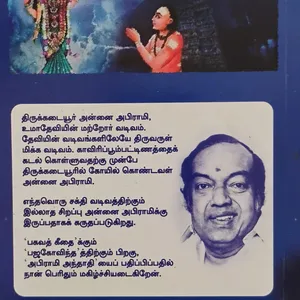 திருக்கடையூர் அன்னை அபிராமி,
உமாதேவியின் மற்றோர் வடிவம்.
தேவியின் வடிவங்களிலேயே திருவருள்
மிக்க வடிவம். காவிரிப்பூம்பட்டிணத்தைக்
கடல் கொள்ளுவதற்கு முன்பே
திருக்கடையூரில் கோயில் கொண்டவள்
அன்னை அபிராமி.
எந்தவொரு சக்தி வடிவத்திற்கும்
இல்லாத சிறப்பு அன்னை அபிராமிக்கு
இருப்பதாகக் கருதப்படுகிறது.
'பகவத் கீதை'க்கும்
'பஜகோவிந்த'த்திற்கும் பிறகு,
'அபிராமி அந்தாதி'யைப் பதிப்பிப்பதில்
நான் பெரிதும் மகிழ்ச்சியடைகிறேன்.